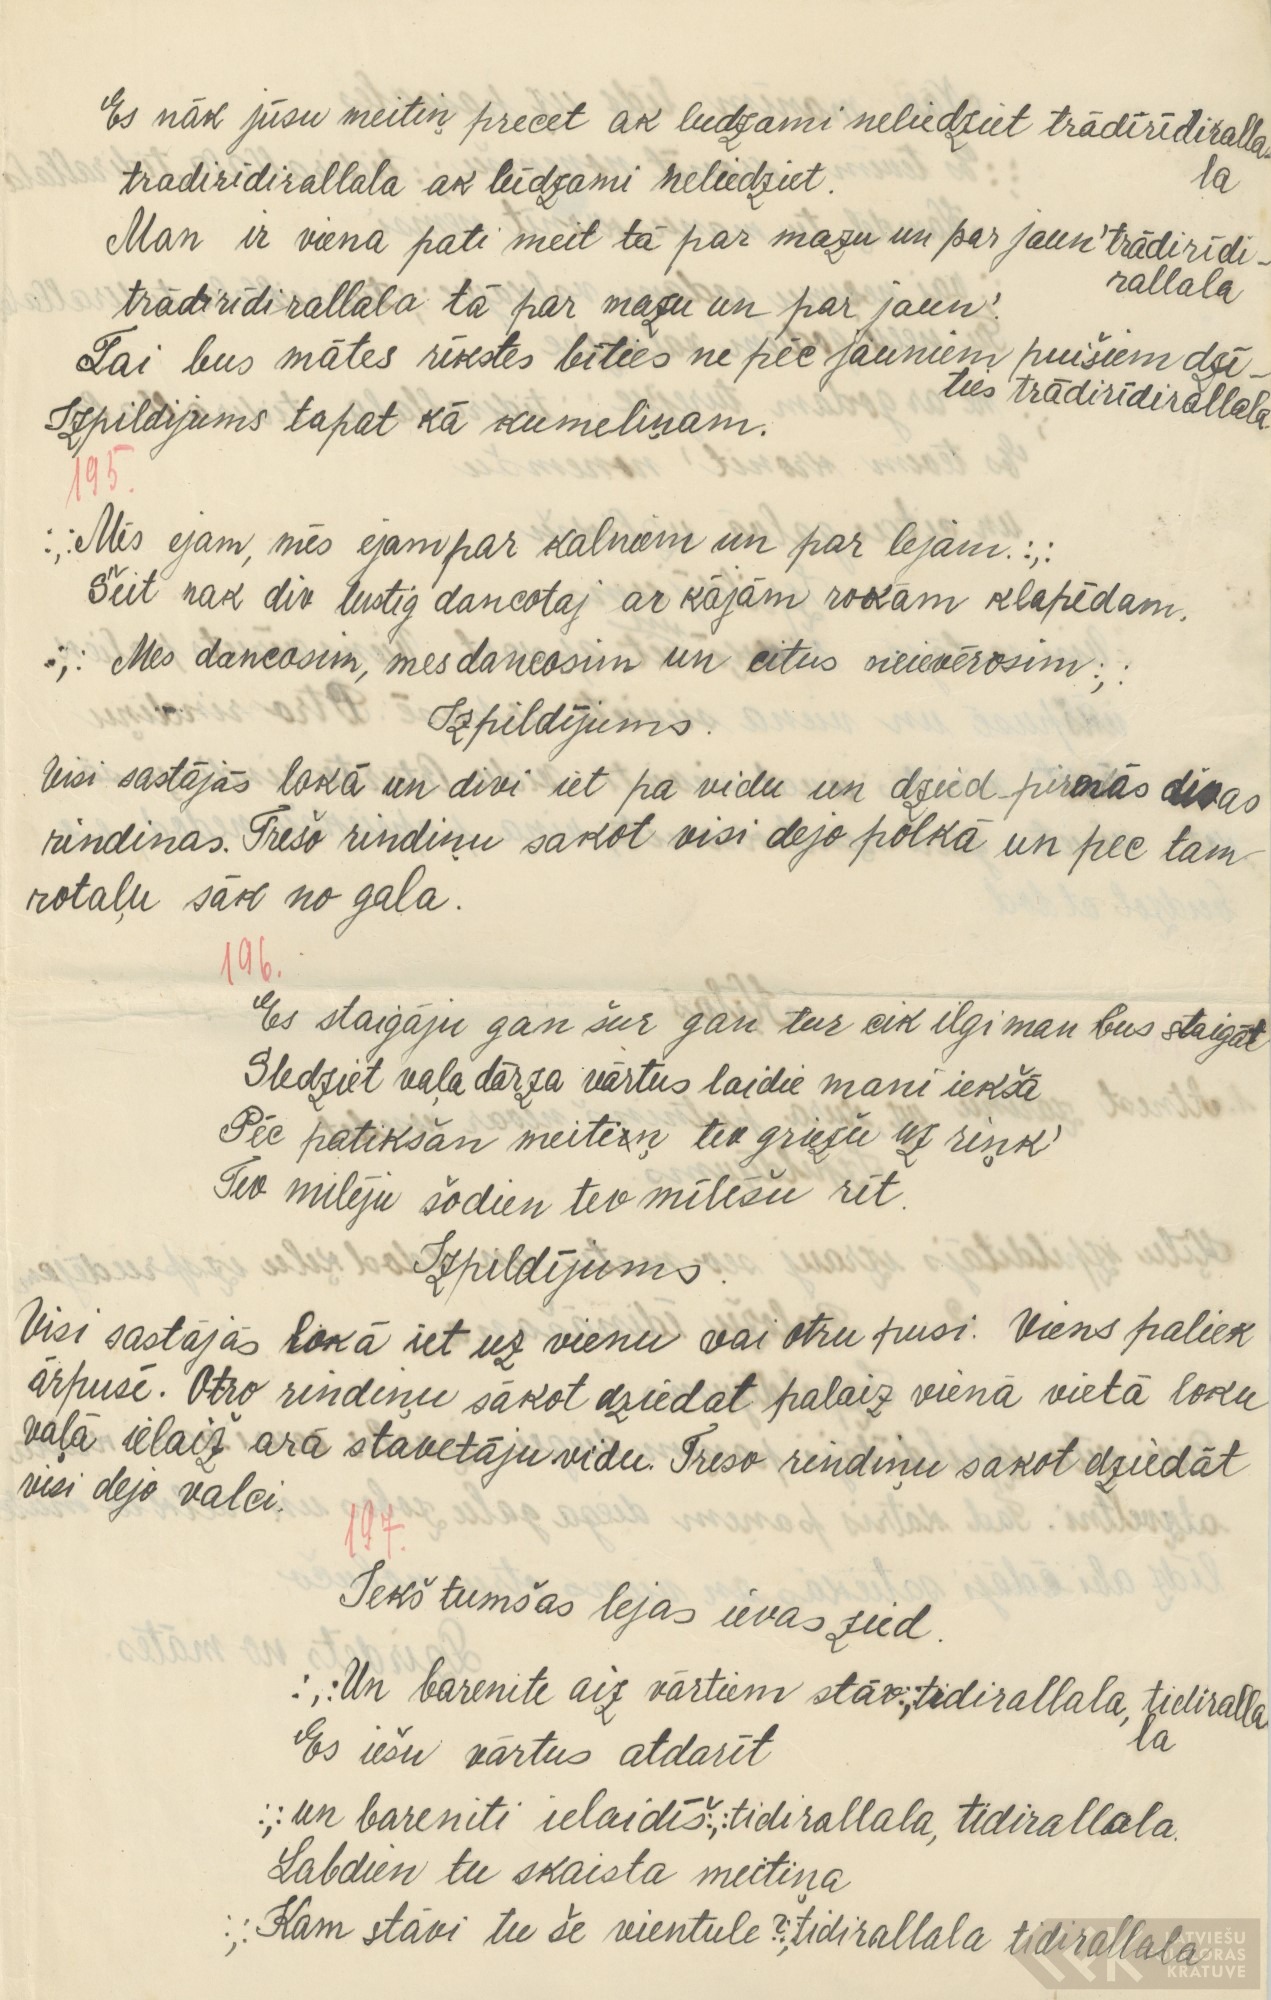 Es nāk jūsu meitiņ precet ak ludzami neliedziet trādirīdiralla-
la
tradiridirallala ak lūdzami neliedziet.
Man ir viena pati meit tā par mazu un par jaun' trādirīdi-
rallala
trādirīdirallala tā par mazu un par jaun'.
Tai bus mātes rīkstes bīties ne pēc jauniem puišiem dzī-
ties trādirīdirallala
Izpildijums tapat kā kumeliņam.
195.
:,: Mēs ejam, mēs ejam par kalniem un par lejām. :,:
Šeit nak div lustig dancotaj ar kājām rokām klapēdam.
:,: Mes dancosim, mes dancosim un citus neievērosim :,:
Izpildījums.
Visi sastājās lokā un divi iet pa vidu un dzied pirmās divas
rindinas. Trešo rindiņu sakot visi dejo polkā un pec tam
rotaļu sāk no gala.
196.
Es staigāju gan šur gan tur cik ilgi man bus staigāt
Sledziet vaļa dārza vārtus laidie mani iekšā
Pēc patikšan meitiņ tev griezšu uz riņk'
Tev milēju šodien tev mīlēšu rīt.
Izpildījums.
Visi sastājās lokā iet uz vienu vai otru pusi. Viens paliek
ārpusē. Otro rindiņu sākot dziedat palaiz vienā vietā loku
vaļā ielaiž arā stavetāju vidu. Treso rindiņu sakot dziedāt
visi dejo valci.
197.
Iekš tumšas lejas ievas zied.
:,: Un barenite aiz vārtiem stāv :,: tidirallala, tidiralla
la
Es iešu vārtus atdarīt
:,: un bareniti ielaidīš :,: tidirallala, tidirallala.
Labdien tu skaista meitiņa
:,: Kam stāvi tu še vientule? :,: tidirallala tidirallala
LATVIEŠU
FOLKLORAS
KRĀTUVE